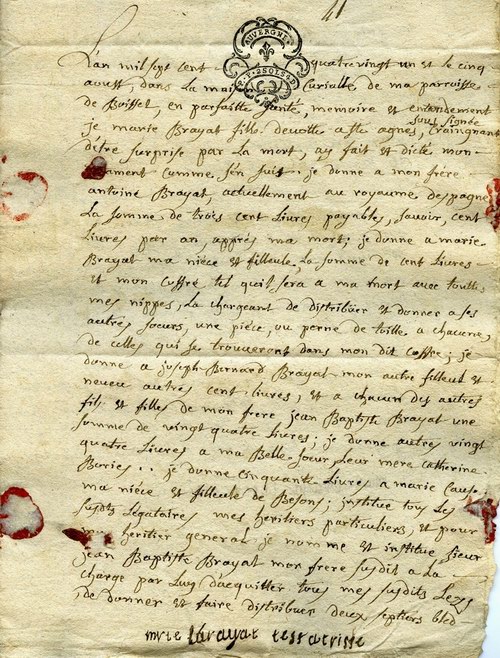 41
AUVERGNE
P.P. 2 SOLS 4 D.
L'an mil sept cent quatre vingt un et le cinq
aoust, dans La maison Curialle de ma parroisse
de Boisset, en parfaitte santé, memoire et entendement
je soussignée marie Brayat fille devotte a ste agnes, Craingnant
detre surprise par La mort, ay fait et dicté mon
testament Comme s'en suit. je donne a mon frere
antoine Brayat, actuellement au royaume despagne
La somme de trois cent Livres payables, savoir, cent
Livres par an, apprés ma mort; je donne a marie
Brayat ma niéce et filleule, La somme de cent Livres
et mon coffre tel quil sera a ma mort avec toutte
mes nippes, La chargeant de distribüer et donner a ses
autres soeurs, une piéce, ou perne de toille a chacune,
de celles qui se trouveront dans mon dit Coffre; je
donne a joseph-Bernard Brayat mon autre filleul et
neveu autres cent Livres, et a chacun des autres
fils et filles de mon frere jean Baptiste Brayat une
somme de vingt quatre Livres; je donne autres vingt
quatre Livres a ma Belle soeur, Leur mere catherine
Bories .. je donne cinquante Livres a marie
ma niéce et filleule de Besons; institue tous Les
susdts Legataires mes heritiers particuliers, et pour
mon heritier general je nomme et institue sieur
jean Baptiste Brayat mon frere susdit a La
charge par Luy d'acquitter tous mes susdits Legs
de donner et faire distribuer deux septiers bled
Brayat testatrisse